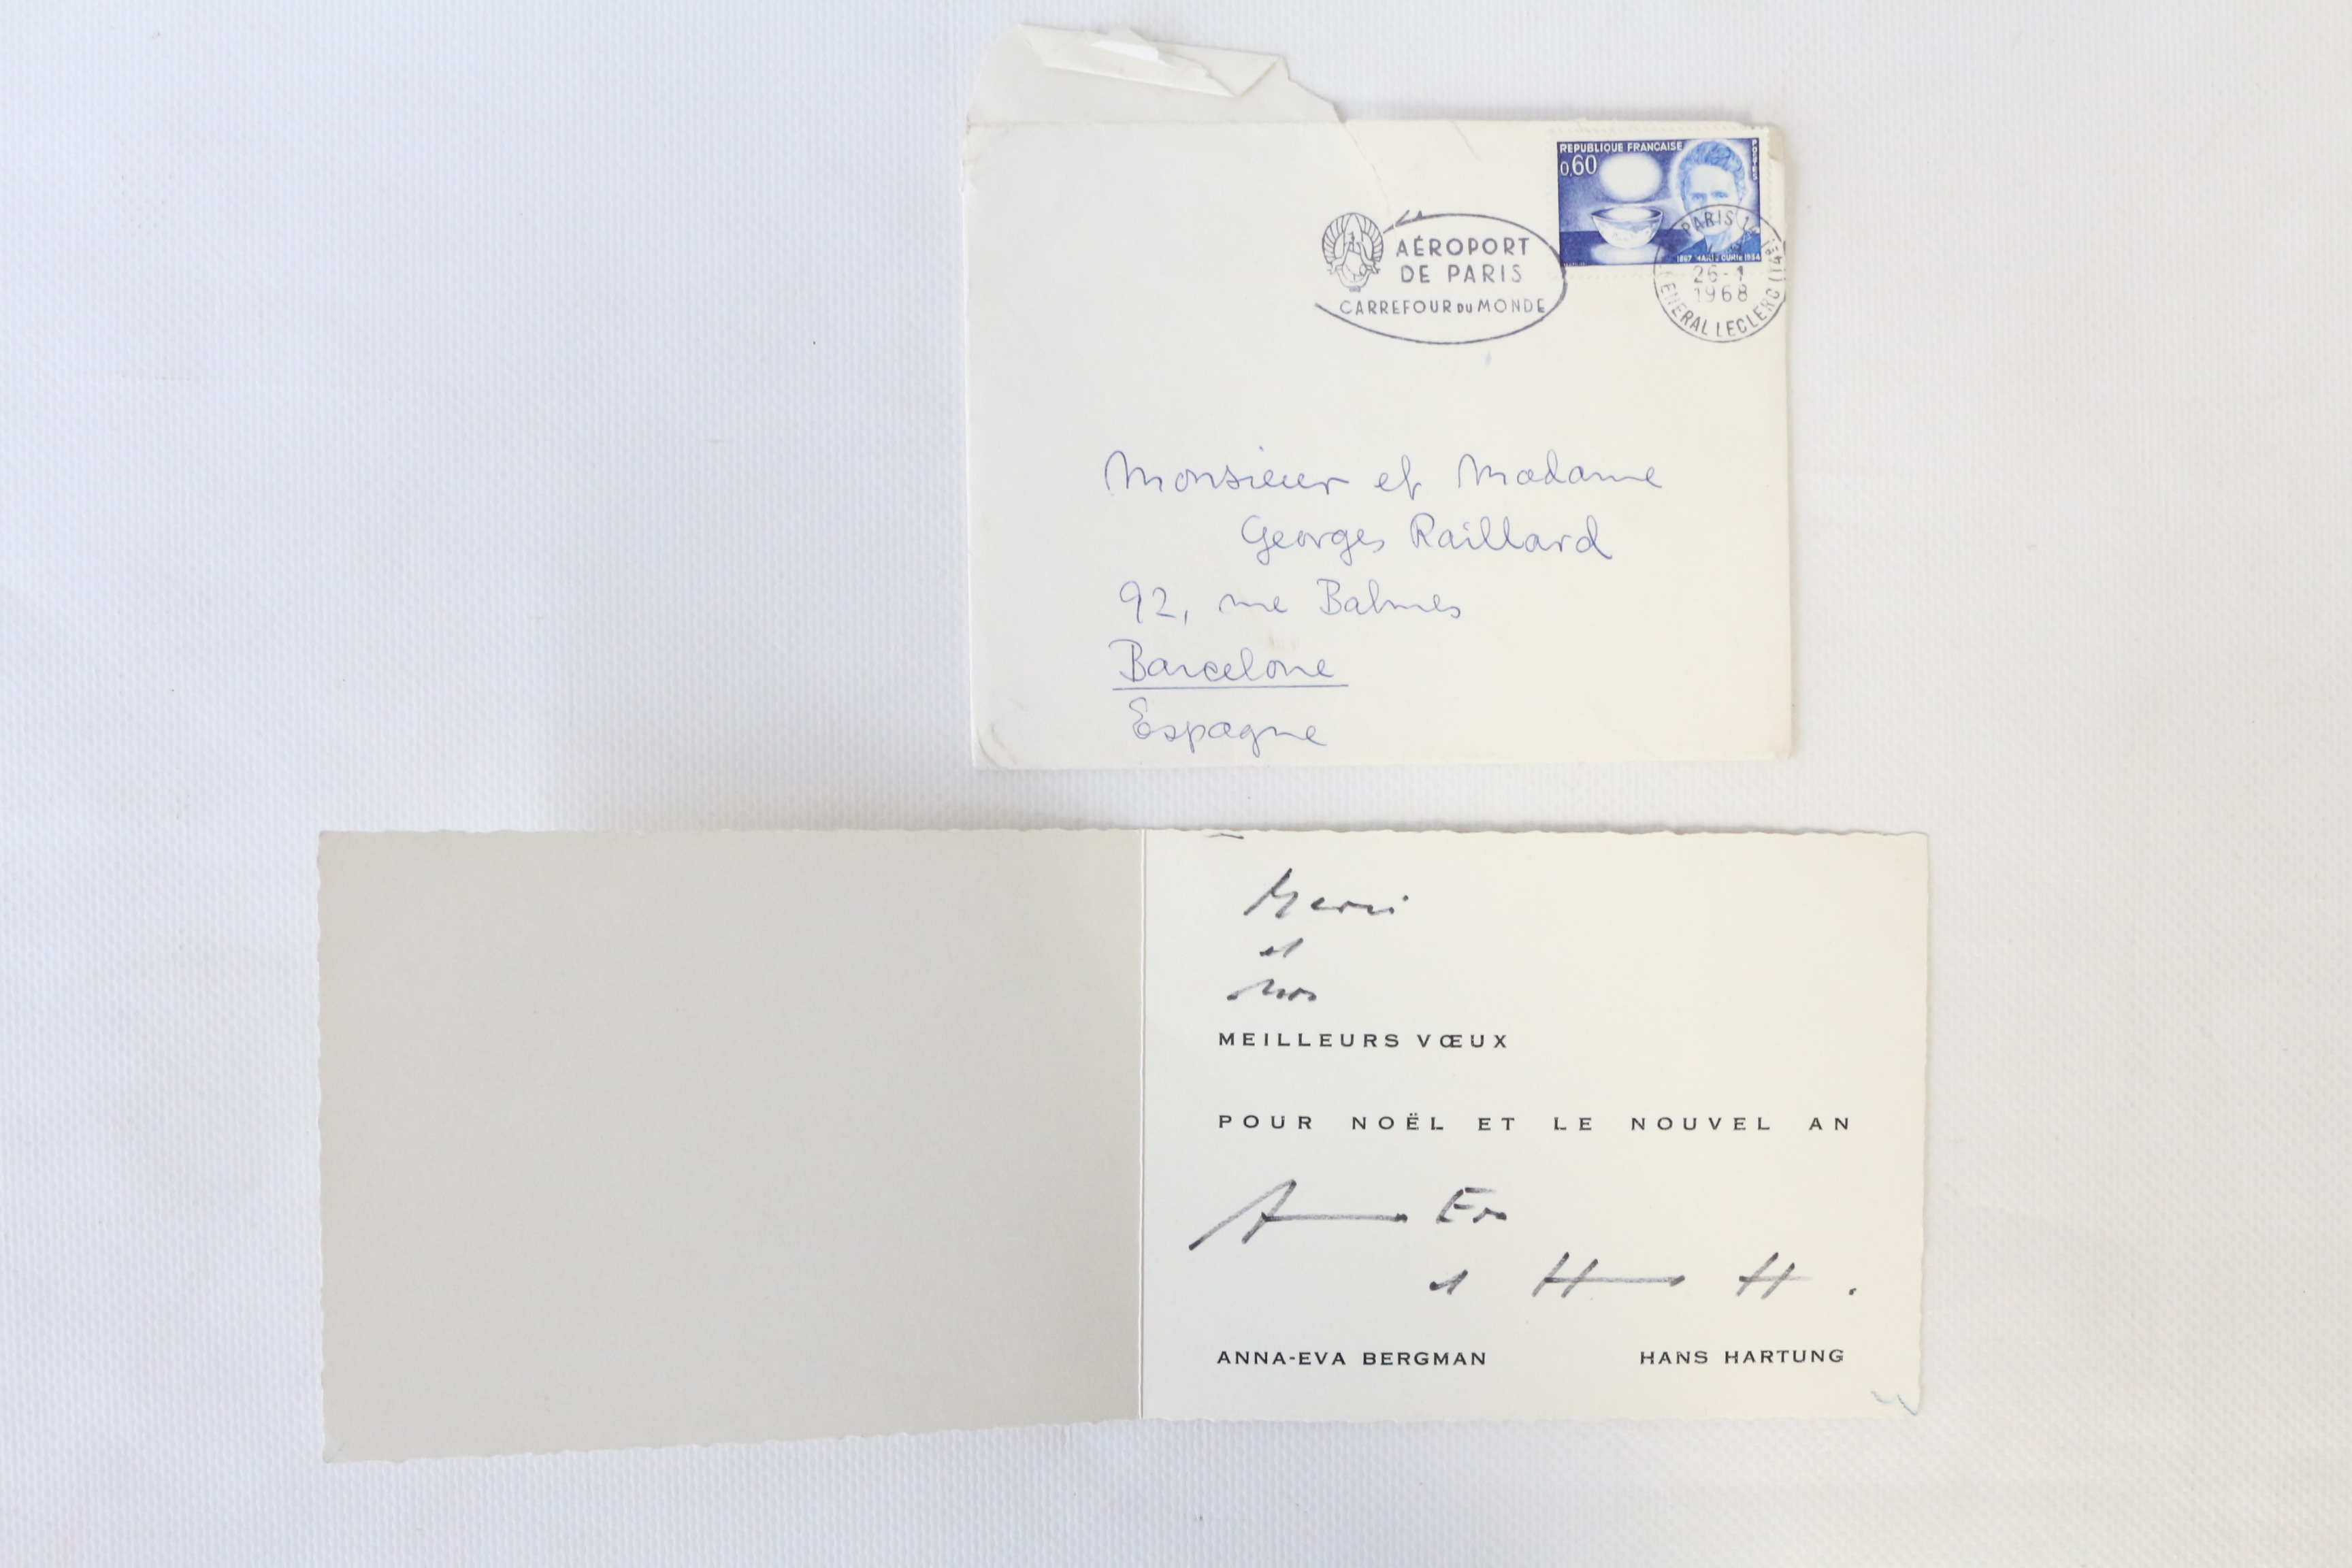 REPUBLIQUE FRANÇAISE
POSTES
0,60
1867 MARIE CURIE 1934
PARIS
26-1
1968
GENERAL LECLERC (14e)
AÉROPORT
DE PARIS
CARREFOUR DU MONDE
Monsieur et Madame
Georges Raillard
92, rue Balmes
Barcelone
Espagne
Merci
et
nos
MEILLEURS VŒUX
POUR NOËL ET LE NOUVEL AN
Anna Eva
et Hans H.
ANNA-EVA BERGMAN HANS HARTUNG